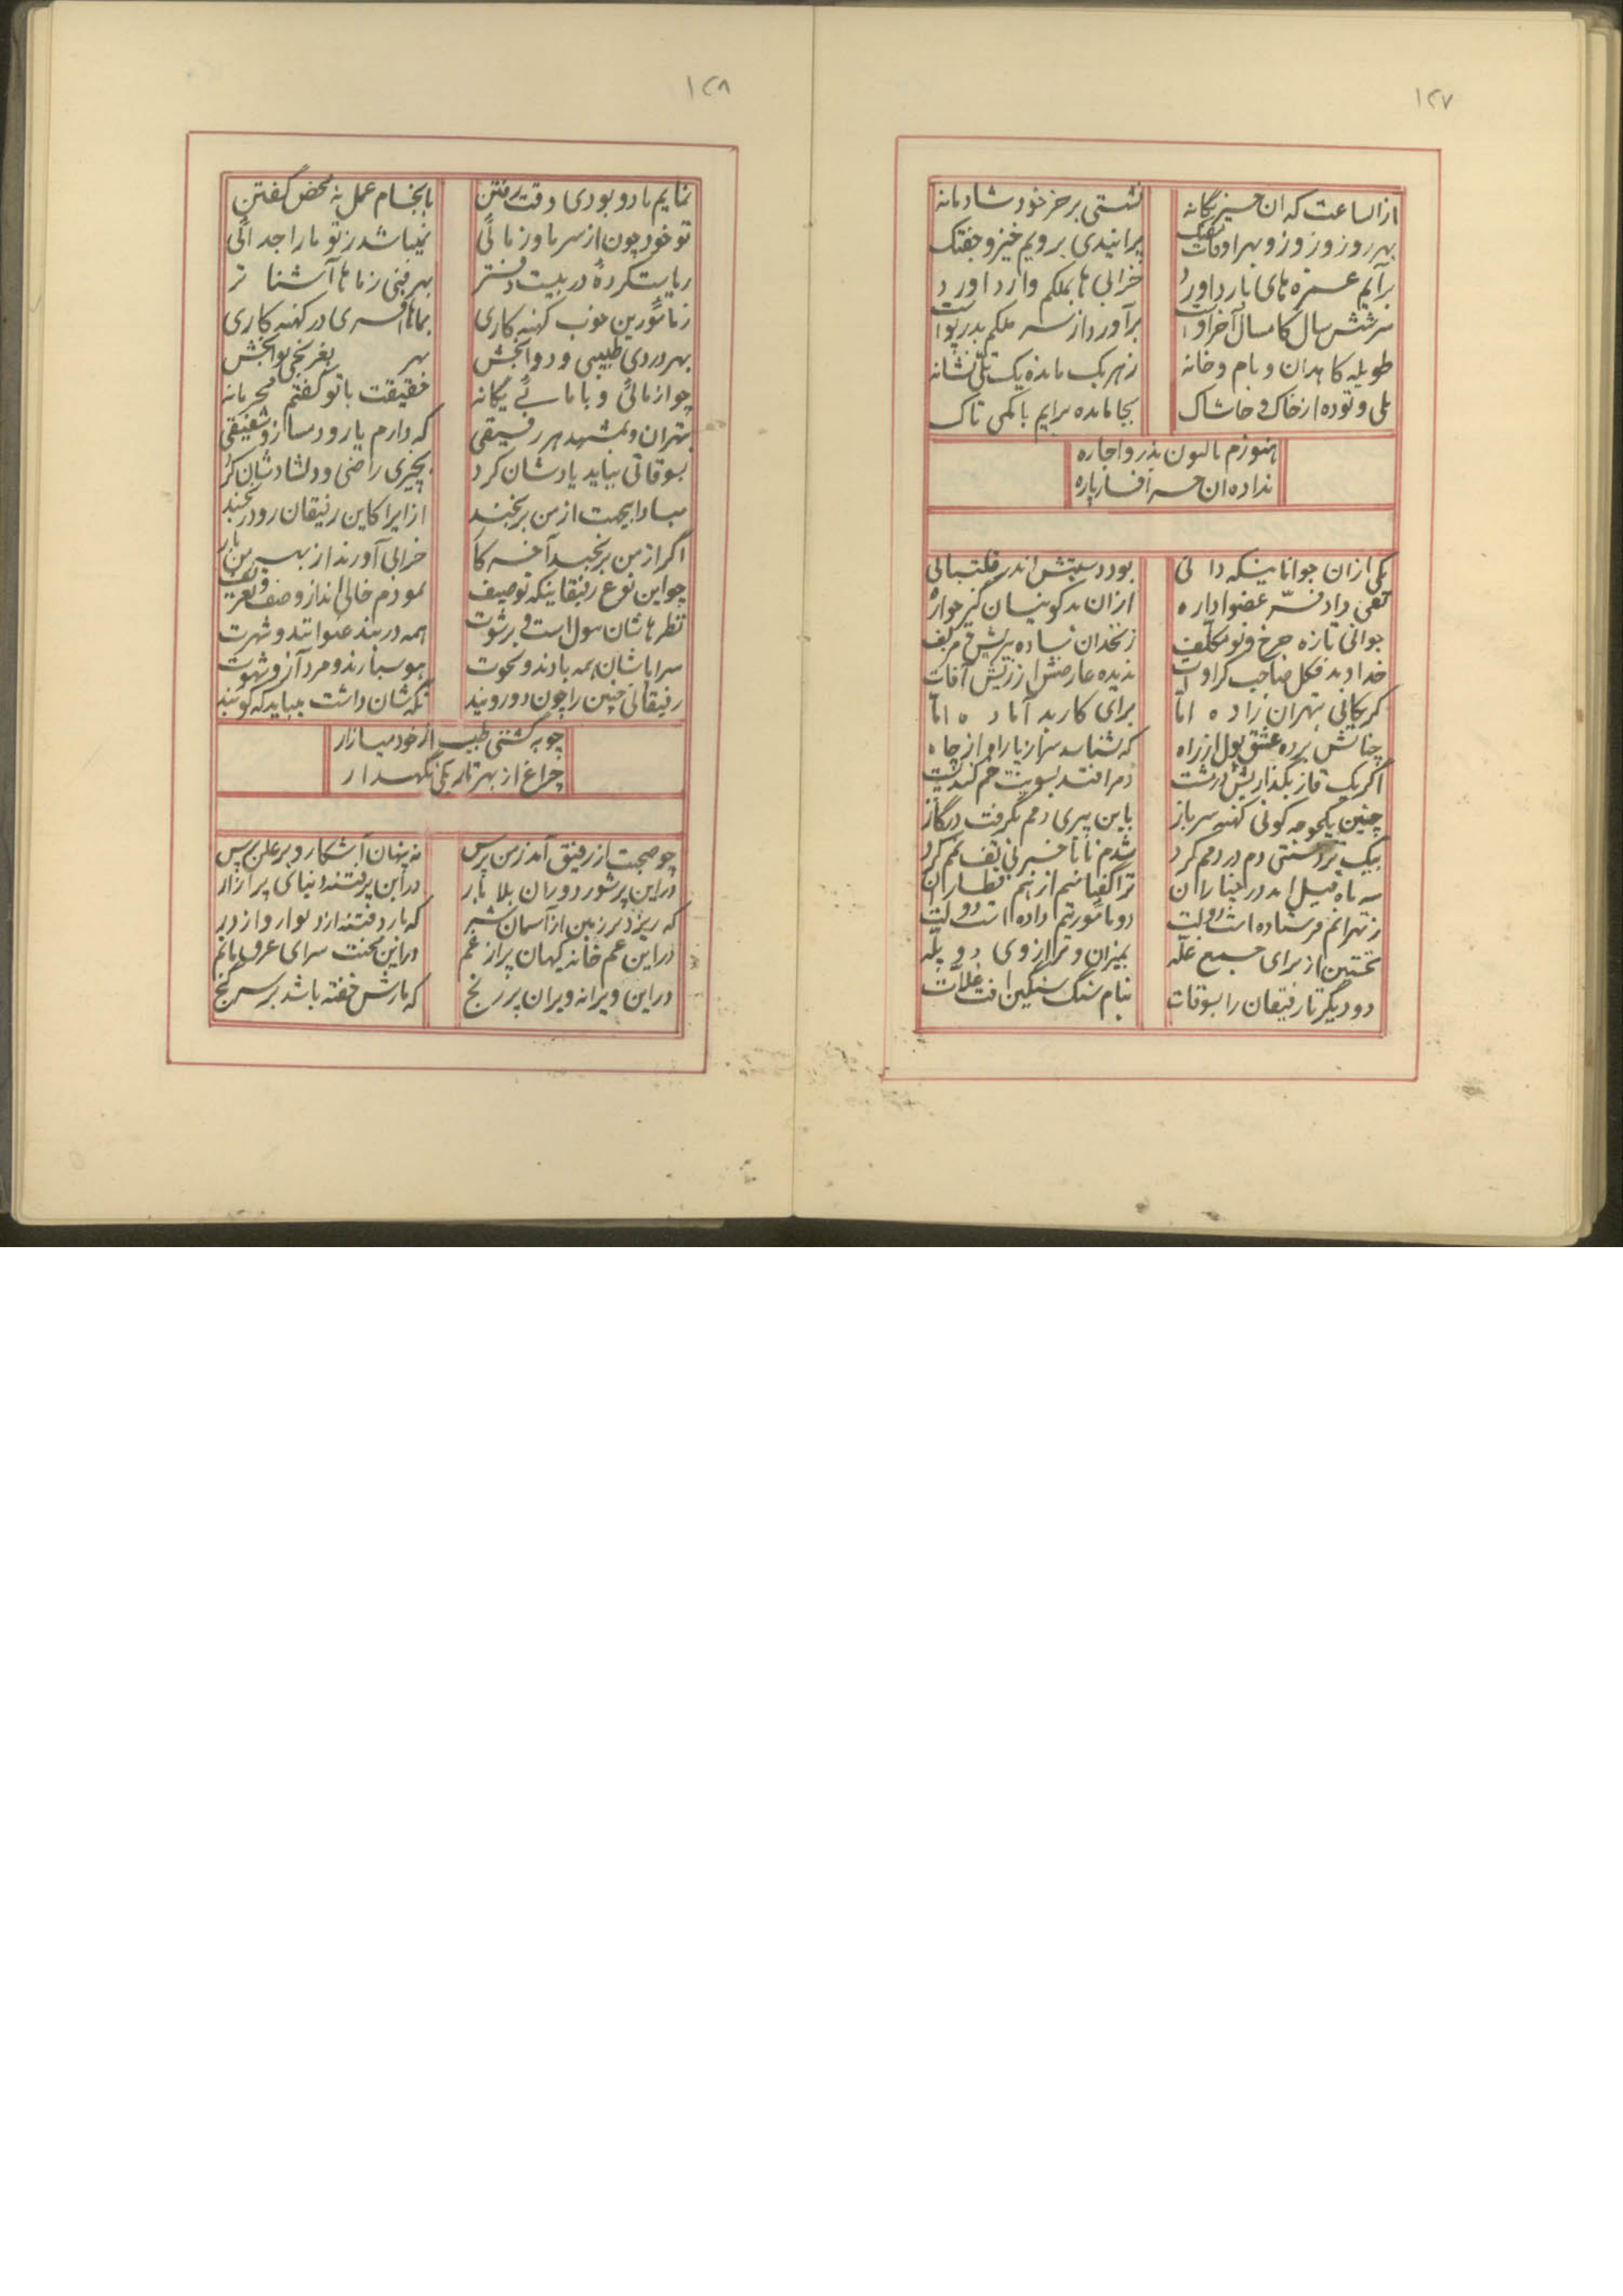 ۱۲۷
ازالساعت که ان خیز یگانه نشستی بر خر خود شادمانه
بهر روز و ز و ز و بهر اوقات پرانیدی برویم خیز و جفتک
برآیم خرابی ها بملکم وارد اورد
سر شش سال کامسال آخر اوست برآورد از سر ملکم بدر پوست
طویله کاهدان و بام و خانه زهر یک مانده یک تلی نشانه
تلی و توده از خاک و خاشاک بجا مانده برایم با کمی تاک
هنوزم تا کنون نذر و اجاره
نداده ان خر افسار پاره
یکی ازان جوانانیکه دانی بود دستش اندر قلتبانی
تقی داد فر عضو اداره ازان بد
جوانی تازه چرخ و نو مکلف زنخدان ساده
خداوند فکل صاحب کراوات ندیده عارضش از ریش آفات
تهران زاده اما برای کار بد آماده اما
چنانش برده عشق پول از راه که نشناسد نهار یارا و از چاه
اگر یک قاز بگذاریش در مشت دمر افتد بسویت خم کند پشت
چنین کهنه سرباز باین پیری دمم بگرفت در گاز
بیک تردستی دم در دمم کرد شدم تا با خبر
سه ماه قبل اندر
ز تهرانم فرستاده است دولت دو مامورتم داده است دولت
نخستین از برای جمع غله بمیزان و ترازوی دو پله
دو دیگر تا رفیقان را بسوقات بنام سنگ سنگین افت غلات
۱۲۸
نمایم یاد و بودی وقت رفتن بانجام عمل نه محض گفتن
تو خود چون از سر ما و ز مائی نمیباشد ز تو ما را جدائی
ریاست کرده در بیست دفتر بهر فنی ز ماها آشنا تر
ز مامورین خوب کهنه کاری بماها افسری در کهنه کاری
بهر دردی طبیبی و دوا بخش بهر بغرنجی نوا بخش
چو از مائی و با مائے یگانه حقیقت با تو گفتم محرمانه
بتهران و بمشهد هر رفیقی که دارم یار و دمساز و شفیقی
بسوقاتی بباید یادشان کرد بچیزی راضی و دلشادشان کرد
مبادا بیجهت از من برنجند ازیرا کاین رفیقان زود رنجند
اگر از من برنجند آخر کار خرابی آورند از بهر من بار
چو این نوع رفیقانیکه توصیف نمودم خالی اند از وصف و تعریف
نظرهاشان بپول است و برشوت همه در بند عنوانند و شهرت
سراپاشان همه بادند و نخوت هوسبازند و مرد آز و شهوت
رفیقانی چنین را چون درویند نگهشان داشت بباید که گویند
چو به گشتی طبیب از خود میازار
چراغ از بهر تاریکی نگهدار
چو صحبت از رفیق آمد ز من پرس نه پنهان آشکار و بر علن پرس
در این پر شور دوران بلا بار در این پر فتنه دنیای پر آزار
که ریزد بر زمین از آسمان شر که بارد فتنه از دیوار و از در
در این غم خانه کیهان پر از غم در این محنت سرای غرق ماتم
در این ویرانه ویران پر رنج که مارش خفته باشد بر سر گنج